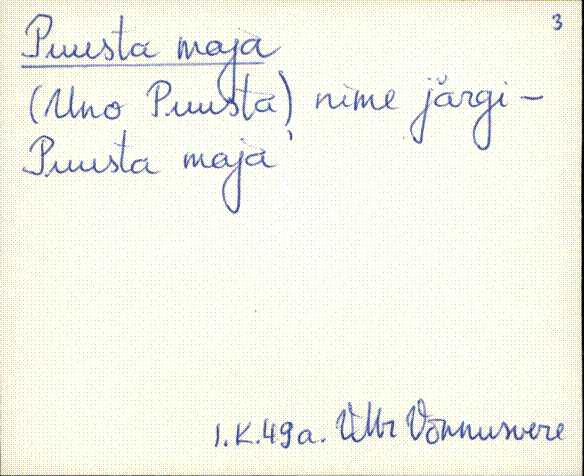 3
Puusta maja
(Uno Puusta) nime järgi –
Puusta maja'
I.K.49a. Võnnusvere